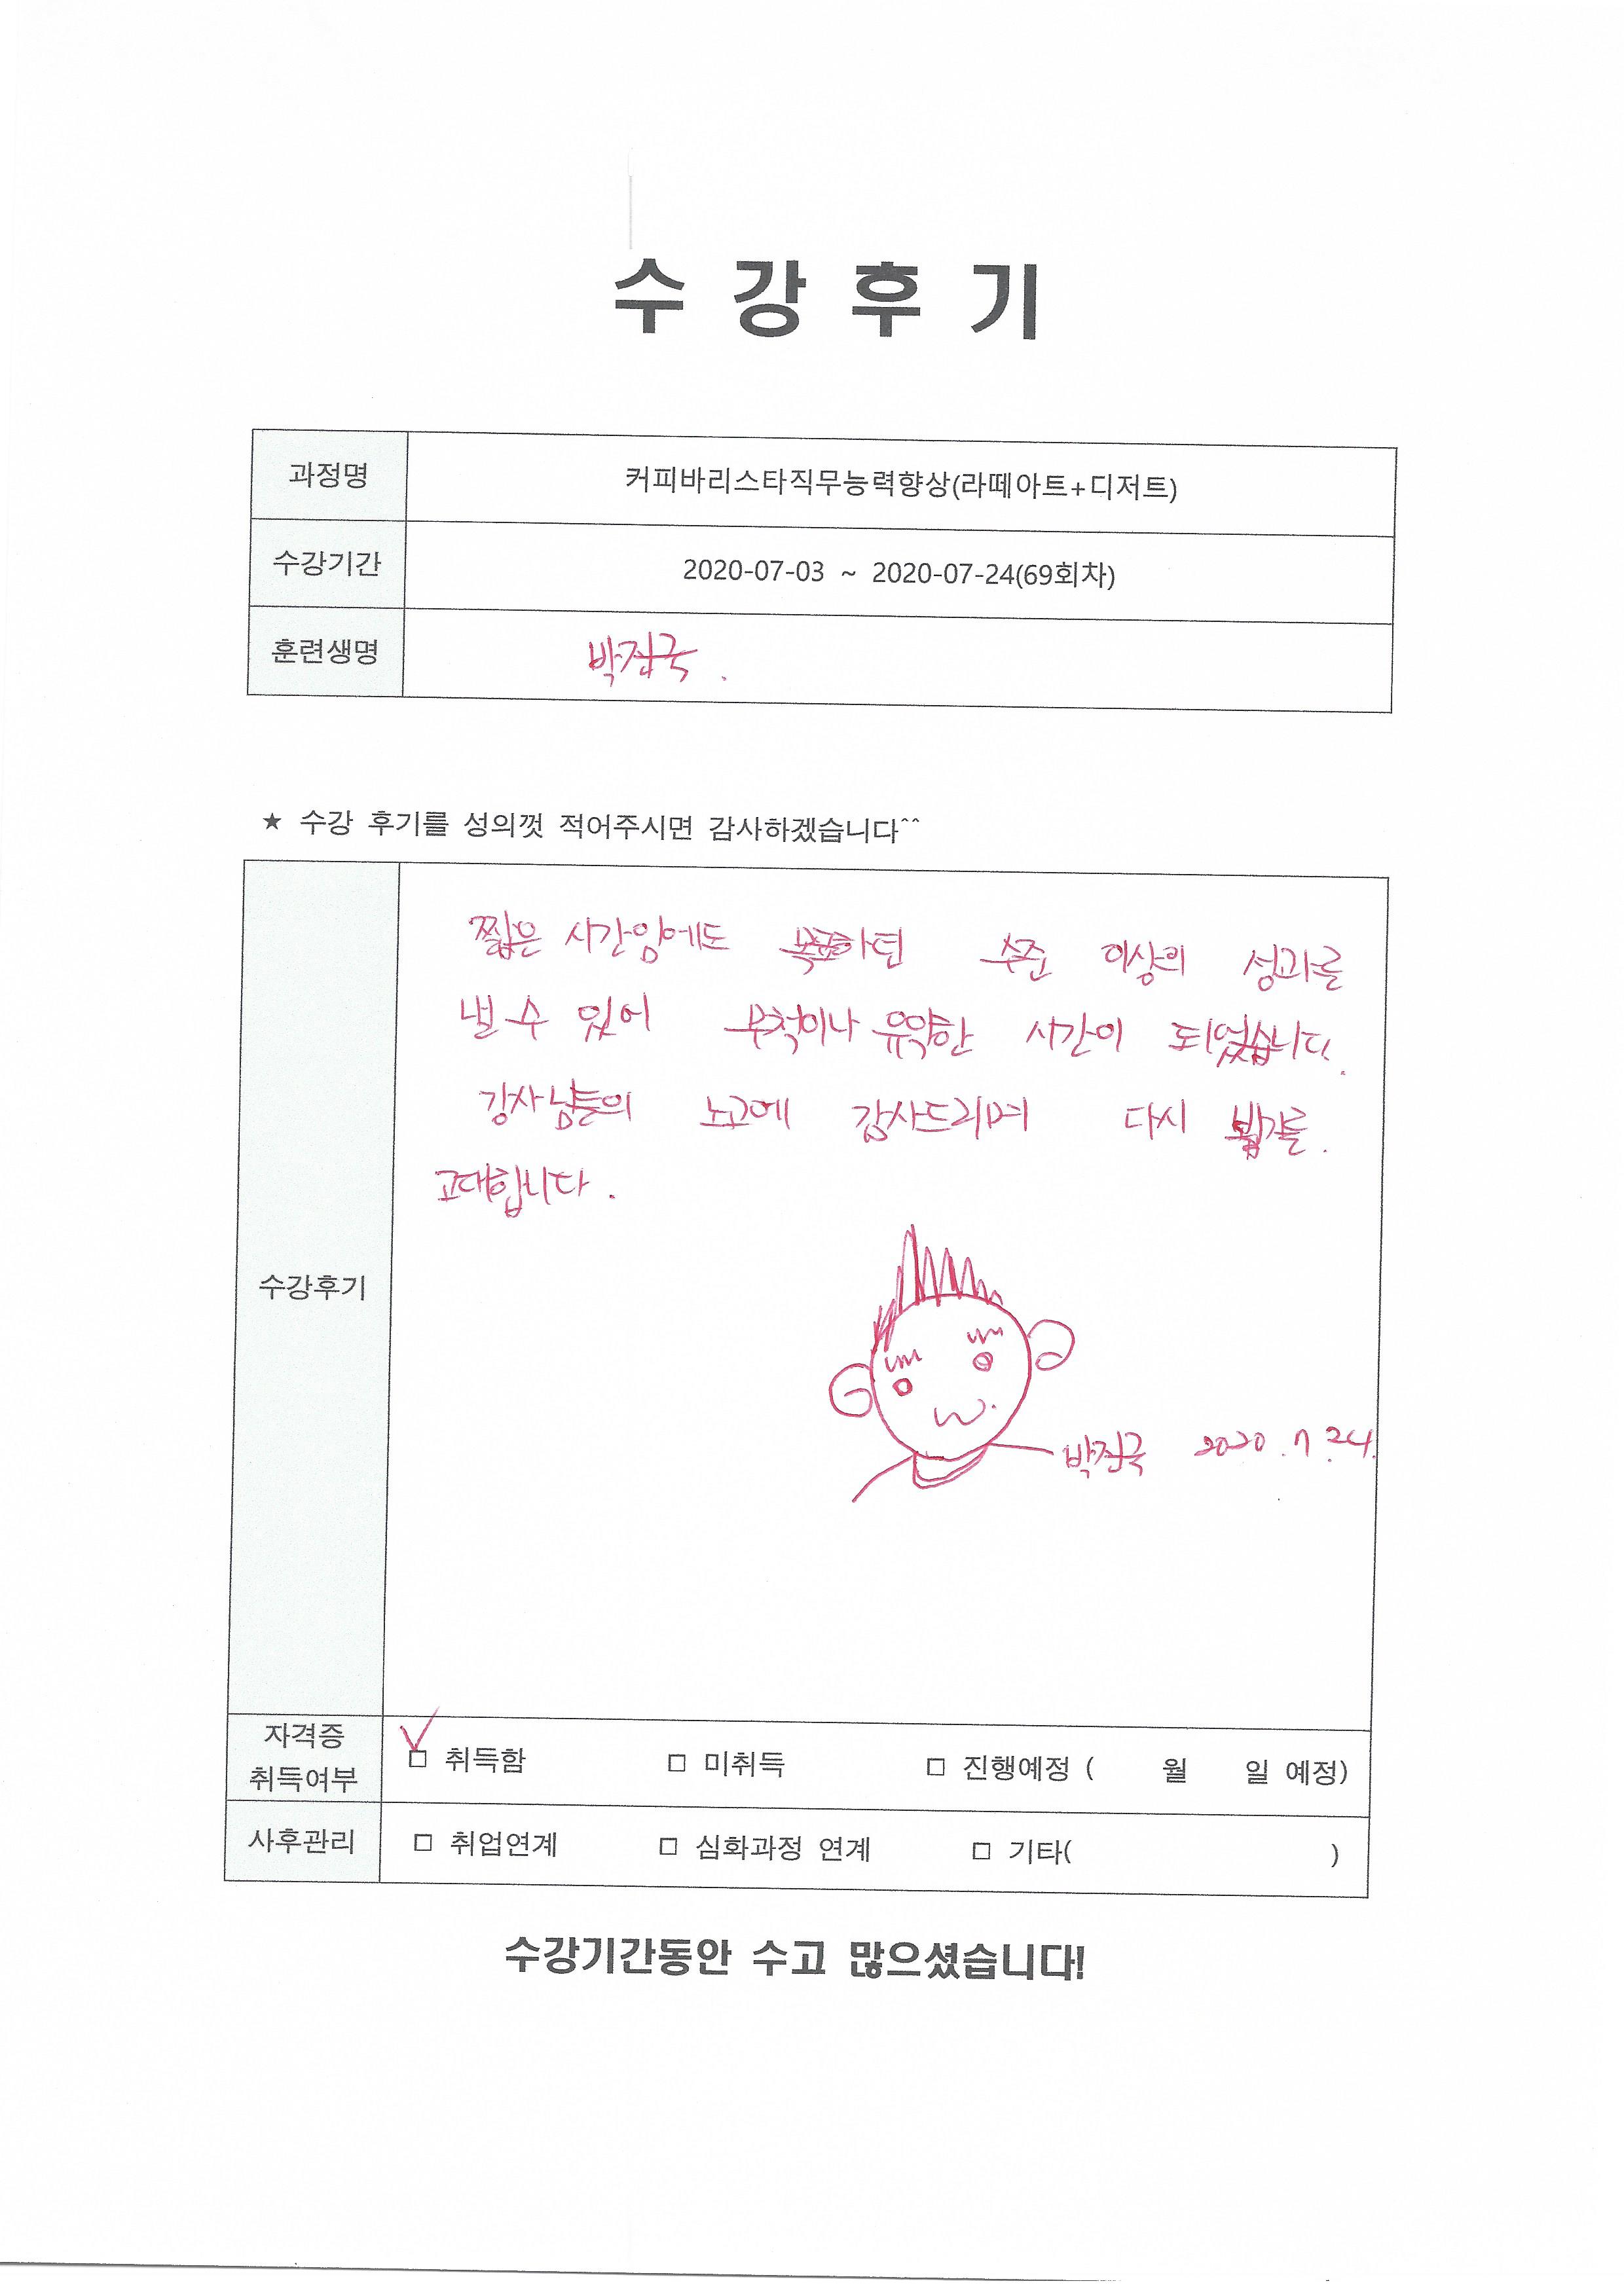 수 강 후 기
과정명 커피바리스타직무능력향상(라떼아트+디저트)
수강기간 2020-07-03 ~ 2020-07-24(69회차)
훈련생명 박진국 .
★ 수강 후기를 성의껏 적어주시면 감사하겠습니다^^
짧은 시간임에도 목표하던 수준 이상의 성과를
낼 수 있어 무척이나 유익한 시간이 되었습니다.
강사님들의 노고에 감사드리며 다시 뵙기를.
고대합니다.
수강후기
박진국 2020.7.24.
자격증
취득여부
□ 취득함 □ 미취득 □ 진행예정 ( 월 일 예정)
사후관리 □ 취업연계 □ 심화과정 연계 □ 기타( )
수강기간동안 수고 많으셨습니다!